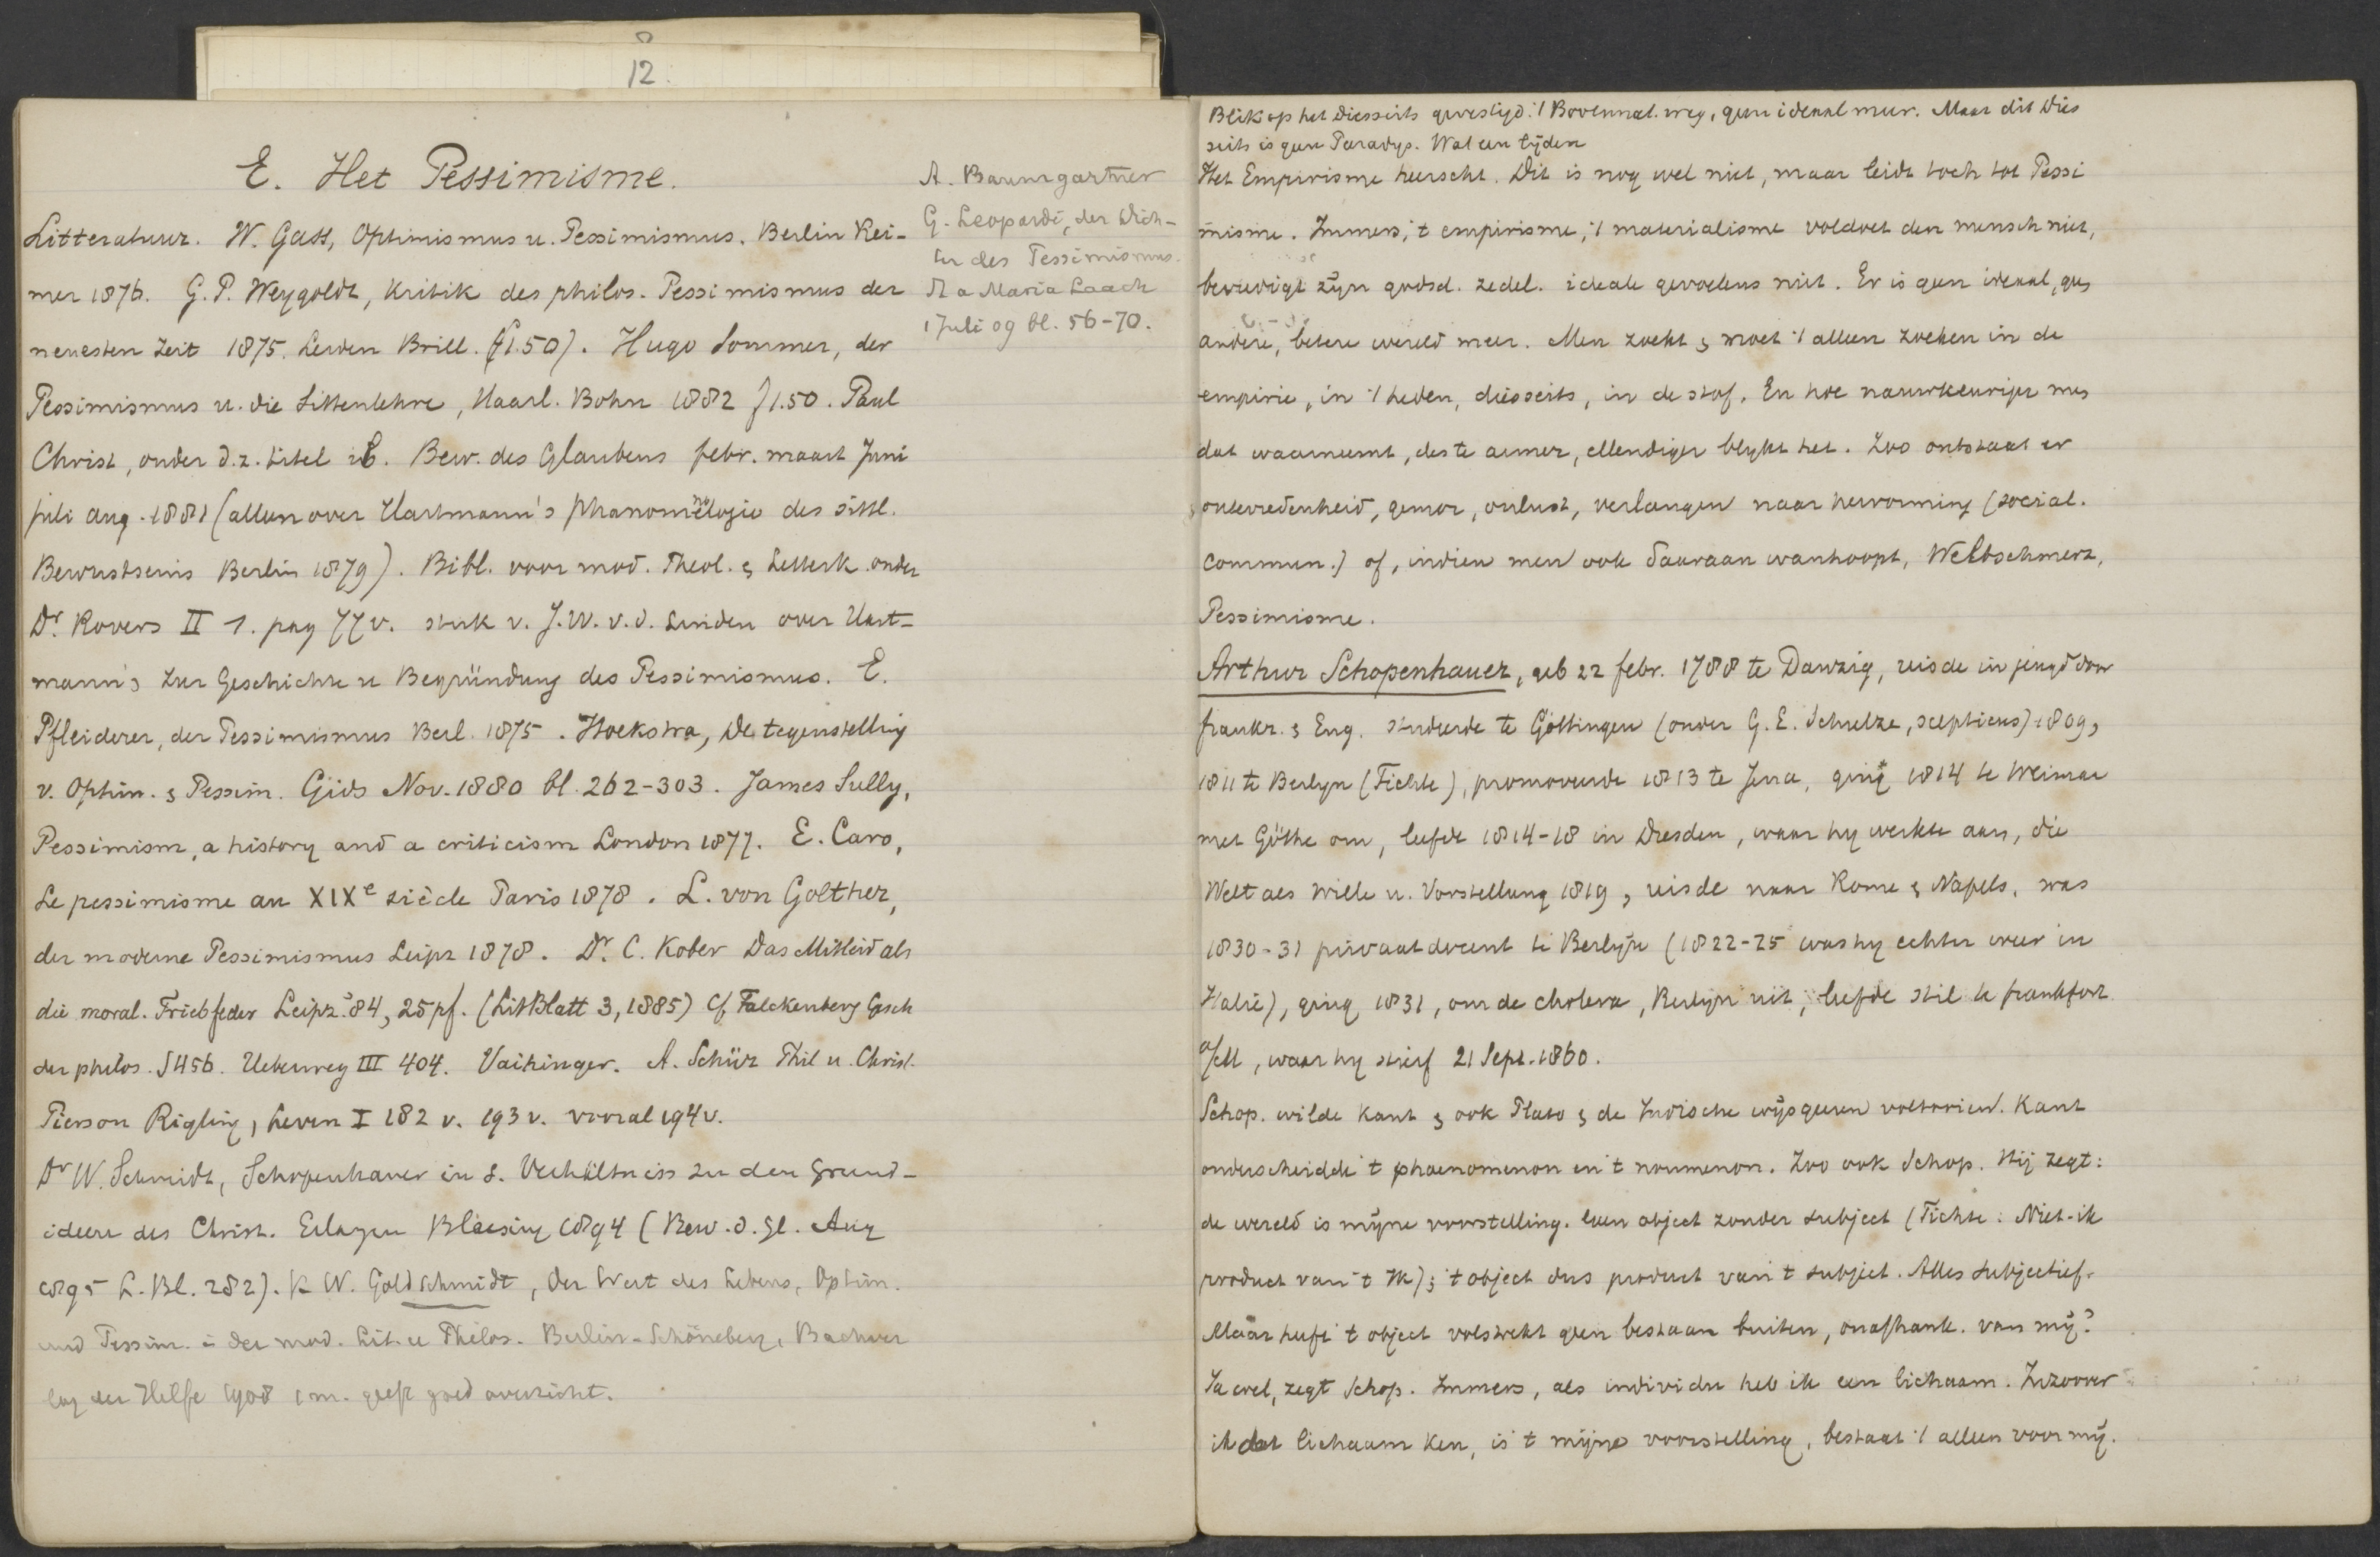 12.
E. Het Pessimisme.
Litteratuur. W. Gass, Optimismus u. Pessimismus. Berlin Rei-
mer 1876. G.P. Weygoldt, Kritik des philos. Pessimismus der
neuesten Zeit 1875. Leiden Brill. (f1.50). Hugo Sommer, der
Pessimismus u. die Sittenlehre, Haarl. Bohn 1882 f1.50. Paul
Christ, onder d.z. titel ib. Bew. des Glaubens febr. maart Juni
juli aug. 1881 (alleen over Hartmann's Phänomenologie des sittl.
Bewustseins Berlin 1879). Bibl. voor mod. Theol. & Letterk. onder
Dr. Rovers II 1. pag 77 v. stuk v. J.W. v.d. Linden over Hart-
mann's Zur Geschichte u Begründung des Pessimismus. E.
Pfleiderer, der Pessimismus Berl. 1875. Hoekstra, De tegenstelling
v. Optim. & Pessim. Gids Nov. 1880 bl. 262-303. James Sully,
Pessimism, a history and a criticism London 1877. E. Caro,
Le pessimisme au XIXe siècle Paris 1878. L. von Golther,
der moderne Pessimismus Leipz 1878. Dr. C. Kober Das Mitleid als
die moral. Triebfeder Leipz. '84, 25 pf. (LitBlatt 3, 1885) Cf Falckenberg Gesch
der philos. S 456. Ueberweg III 404. Vaihinger. A. Schürz Phil u. Christ.
Pierson Rigting, Leven I 182 v. 193 v. vooral 194 v.
Dr W. Schmidt, Schopenhauer in s. Verhältniss zu den Grund-
ideeen des Christ. Erlangen Blaesing 1894 (Bew. d. Gl. Aug
1895 L. Bl. 282). K W. Goldschmidt, Der Wert des Lebens, Optim.
und Pessim. in der mod. Lit. u Philos. Berlin-Schöneberg, Buchver
lag der Hilfe 1908 1 m. geeft goed overzicht.
A. Baumgartner
G. Leopardi, der Dich-
ter des Pessimismus.
St a Maria Laach
1 Juli 09 bl. 56-70.
Blik op het Diesseits gevestigd. 't Bovennat. weg, geen ideaal meer. Maar dit Dies
seits is geen Paradys. Wat een lijden
Het Empirisme heerscht. Dit is nog wel niet, maar leidt toch tot Pessi
misme. Immers, 't empirisme, 't materialisme voldoet den mensch niet,
bevredigt zijn godsd. zedel. ideale gevoelens niet. Er is geen ideaal, geen
andere, betere wereld meer. Men zoekt & moet 't alleen zoeken in de
empirie, in 't heden, diesseits, in de stof. En hoe nauwkeuriger men
dat waarneemt, des te armer, ellendiger blykt het. Zoo ontstaat er
ontevredenheid, gemor, onlust, verlangen naar hervorming (social.
commun.) of, indien men ook daaraan wanhoopt, Weltschmerz,
Pessimisme.
Arthur Schopenhauer, geb 22 febr. 1788 te Danzig, reisde in jeugd door
frankr. & Eng. studeerde te Göttingen (onder G.E. Schulze, scepticus) 1809,
1811 te Berlyn (Fichte), promoveerde 1813 te Jena, ging 1814 te Weimar
met Göthe om, leefde 1814-18 in Dresden, waar hy werkte aan, die
Welt als Wille u. Vorstellung 1819, reisde naar Rome & Napels, was
1830-31 privaatdocent te Berlyn (1822-25 was hy echter weer in
Italie), ging 1831, om de cholera, Berlyn uit, leefde stil te frankfort
a/M, waar hy stierf 21 Sept. 1860.
Schop. wilde Kant & ook Plato & de Indische wijsgeeren voltooien. Kant
onderscheidde 't phaenomenon en 't noumenon. Zoo ook Schop. Hij zegt:
de wereld is mijne voorstelling. Geen object zonder subject (Fichte: Niet-ik
product van 't Ik); 't object dus product van 't subject. Alles subjectief.
Maar heeft 't object volstrekt geen bestaan buiten, onafhank. van mij?
Ja wel, zegt Schop. Immers, als individu heb ik een lichaam. Inzoover
ik dat lichaam ken, is 't mijne voorstelling, bestaat 't alleen voor mij.